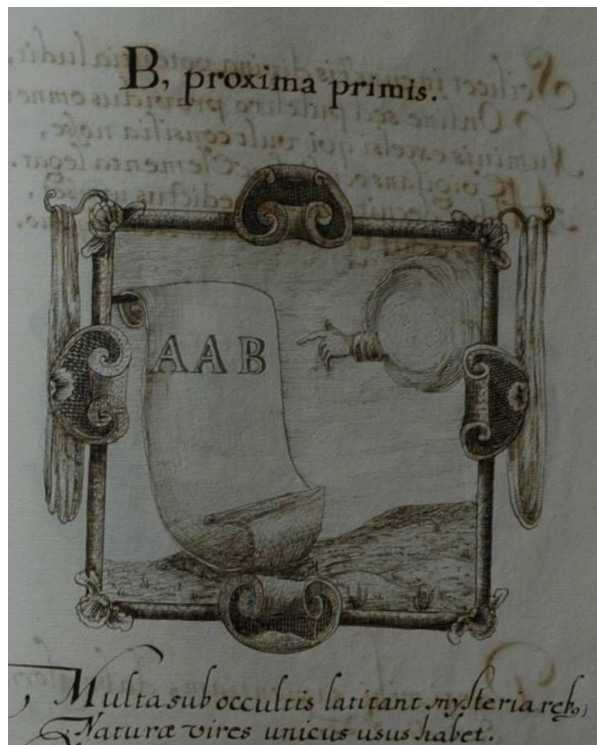 B, proxima primis.
AAB
Multa sub occultis latitant mysteria rebꝰ;
Naturæ vires unicus usus habet.